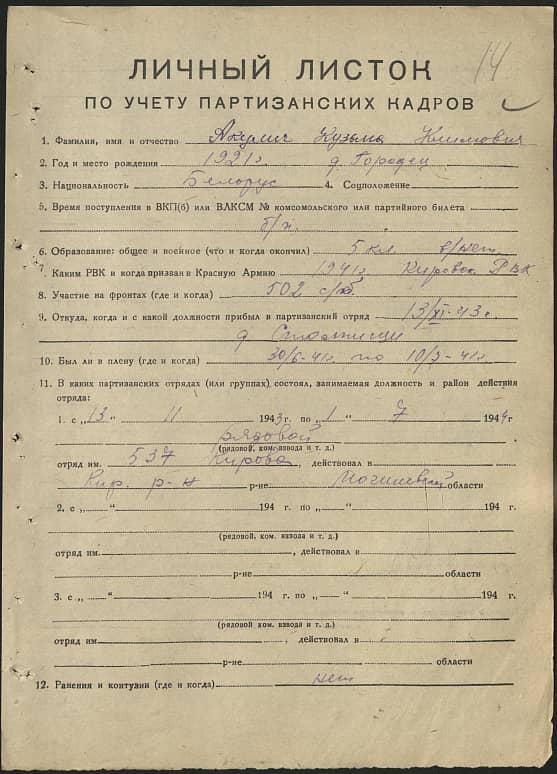 14
ЛИЧНЫЙ ЛИСТОК
ПО УЧЕТУ ПАРТИЗАНСКИХ КАДРОВ
1. Фамилия, имя и отчество Акулич Кузьма Климович
2. Год и место рождения 1921г. д. Городец
3. Национальность Белорус 4. Соцположение
5. Время поступления в ВКП(б) или ВЛКСМ № комсомольского или партийного билета
б/п.
6. Образование: общее и военное (что и когда окончил) 5 кл. в/нет.
7. Каким РВК и когда призван в Красную Армию 1941г. Кировск РВК
8. Участие на фронтах (где и когда) 502
9. Откуда, когда и с какой должности прибыл в партизанский отряд 13/XI-43г.
д.
10. Был ли в плену (где и когда) 30/6-41г. по 10/9-41г.
11. В каких партизанских отрядах (или группах) состоял, занимаемая должность и район действия
отряда:
1. с „13“ 11 1943г. по „1“ 7 1944г
рядовой
(рядовой, ком. взвода и т. д.)
отряд им. 537 Кирова, действовал в
Кир. р-н р-не Могилевской области
2. с „ “ 194 г. по „ “ 194 г.
(рядовой, ком. взвода и т. д.)
отряд им. , действовал в
р-не области
3. с „ “ 194 г. по „ “ 194 г.
(рядовой, ком. взвода и т. д.)
отряд им. , действовал в
р-не области
12. Ранения и контузии (где и когда) нет